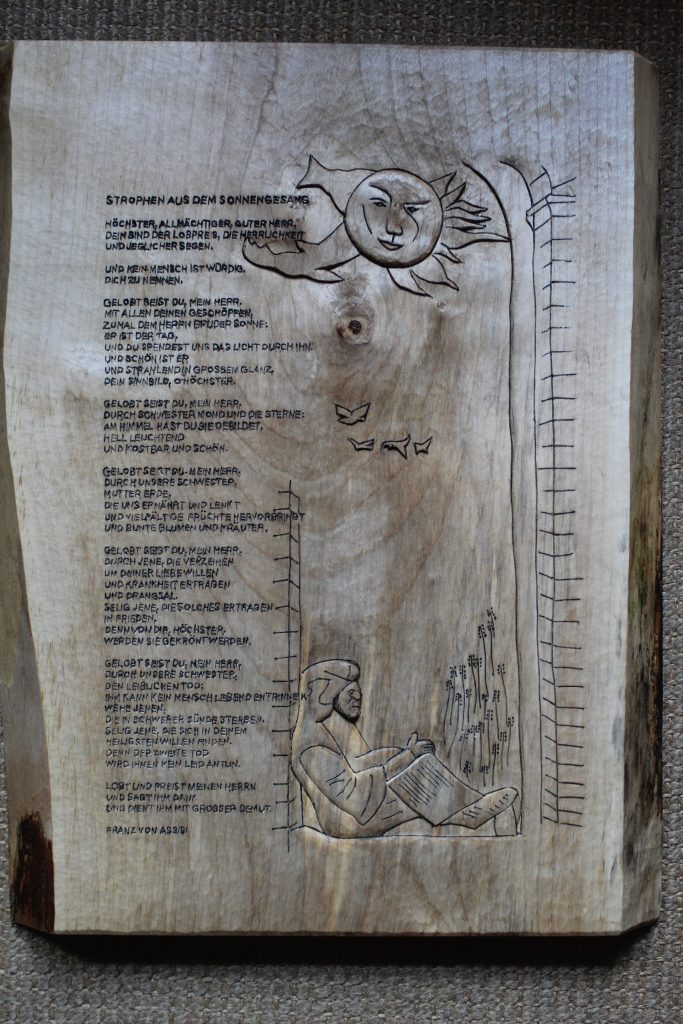 STROPHEN AUS DEM SONNENGESANG
HÖCHSTER, ALLMÄCHTIGER, GUTER HERR,
DEIN SIND DER LOBPREIS, DIE HERRLICHKEIT
UND JEGLICHER SEGEN.
UND KEIN MENSCH IST WÜRDIG,
DICH ZU NENNEN.
GELOBT SEIST DU, MEIN HERR,
MIT ALLEN DEINEN GESCHÖPFEN,
ZUMAL DEM HERRN BRUDER SONNE;
ER IST DER TAG,
UND DU SPENDEST UNS DAS LICHT DURCH IHN.
UND SCHÖN IST ER
UND STRAHLEND IN GROSSEM GLANZ,
DEIN SINNBILD, O HÖCHSTER.
GELOBT SEIST DU, MEIN HERR,
DURCH SCHWESTER MOND UND DIE STERNE;
AM HIMMEL HAST DU SIE GEBILDET,
HELL LEUCHTEND
UND KOSTBAR UND SCHÖN.
GELOBT SEIST DU, MEIN HERR,
DURCH UNSERE SCHWESTER,
MUTTER ERDE,
DIE UNS ERNÄHRT UND LENKT
UND VIELFÄLTIGE FRÜCHTE HERVORBRINGT
UND BUNTE BLUMEN UND KRÄUTER.
GELOBT SEIST DU, MEIN HERR,
DURCH JENE, DIE VERZEIHEN
UM DEINER LIEBE WILLEN
UND KRANKHEIT ERTRAGEN
UND DRANGSAL.
SELIG JENE, DIE SOLCHES ERTRAGEN
IN FRIEDEN,
DENN VON DIR, HÖCHSTER,
WERDEN SIE GEKRÖNT WERDEN.
GELOBT SEIST DU, MEIN HERR,
DURCH UNSERE SCHWESTER,
DEN LEIBLICHEN TOD;
IHM KANN KEIN MENSCH LEBEND ENTRINNEN.
WEHE JENEN,
DIE IN SCHWERER SÜNDE STERBEN.
SELIG JENE, DIE SICH IN DEINEM
HEILIGSTEN WILLEN FINDEN,
DENN DER ZWEITE TOD
WIRD IHNEN KEIN LEID ANTUN.
LOBT UND PREIST MEINEN HERRN
UND SAGT IHM DANK
UND DIENT IHM MIT GROSSER DEMUT.
FRANZ VON ASSISI